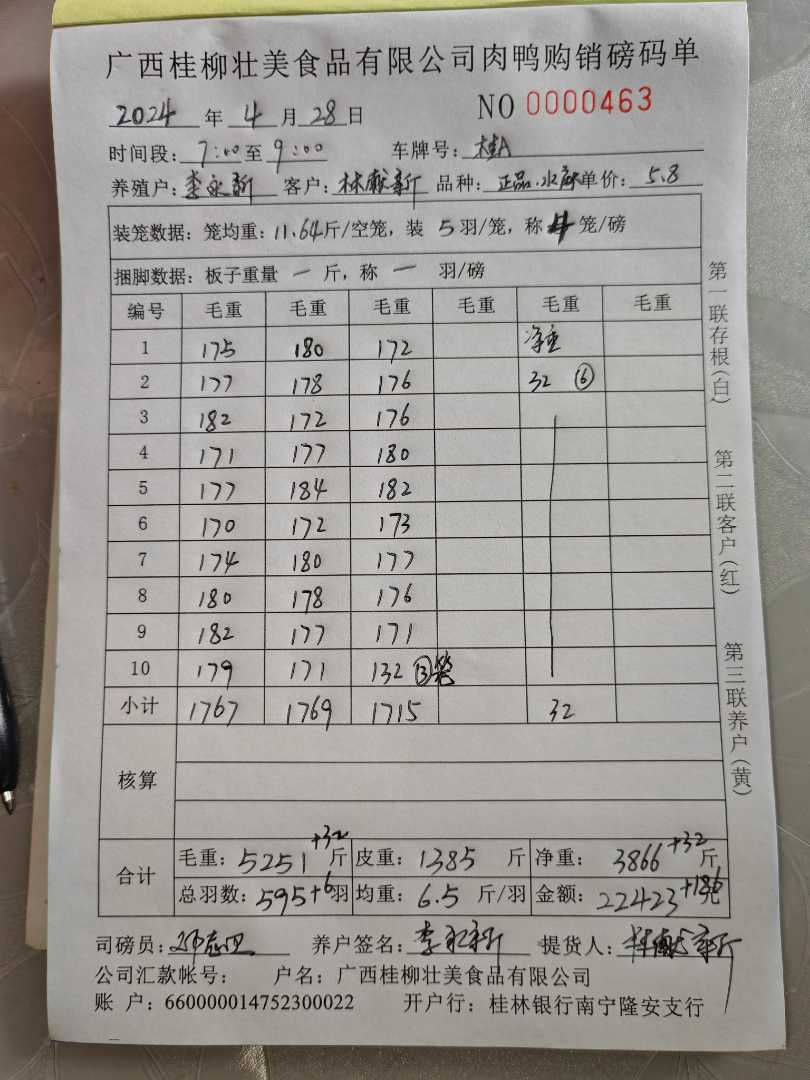 广西桂柳壮美食品有限公司肉鸭购销磅码单
2024 年 4 月 28 日 NO 0000463
时间段:7:00至9:00 车牌号:桂A
养殖户:李永新 客户:林献新 品种:正品.水麻单价:5.8
装笼数据:笼均重:11.64斤/空笼,装 5 羽/笼,称 4 笼/磅
捆脚数据:板子重量 一 斤,称 一 羽/磅
编号 毛重 毛重 毛重 毛重 毛重 毛重
1 175 180 172 净重
2 177 178 176 32 ⑥
3 182 172 176
4 171 177 180
5 177 184 182
6 170 172 173
7 174 180 177
8 180 178 176
9 182 177 171
10 179 171 132 ③笼
小计 1767 1769 1715 32
核算
合计
毛重:5251+32斤 皮重:1385 斤 净重:3866+32斤
总羽数:595+6羽 均重:6.5 斤/羽 金额:22423+186元
司磅员: 养户签名:李永新 提货人:林献新
公司汇款帐号: 户名:广西桂柳壮美食品有限公司
账 户:660000014752300022 开户行:桂林银行南宁隆安支行
第一联存根(白)
第二联客户(红)
第三联养户(黄)